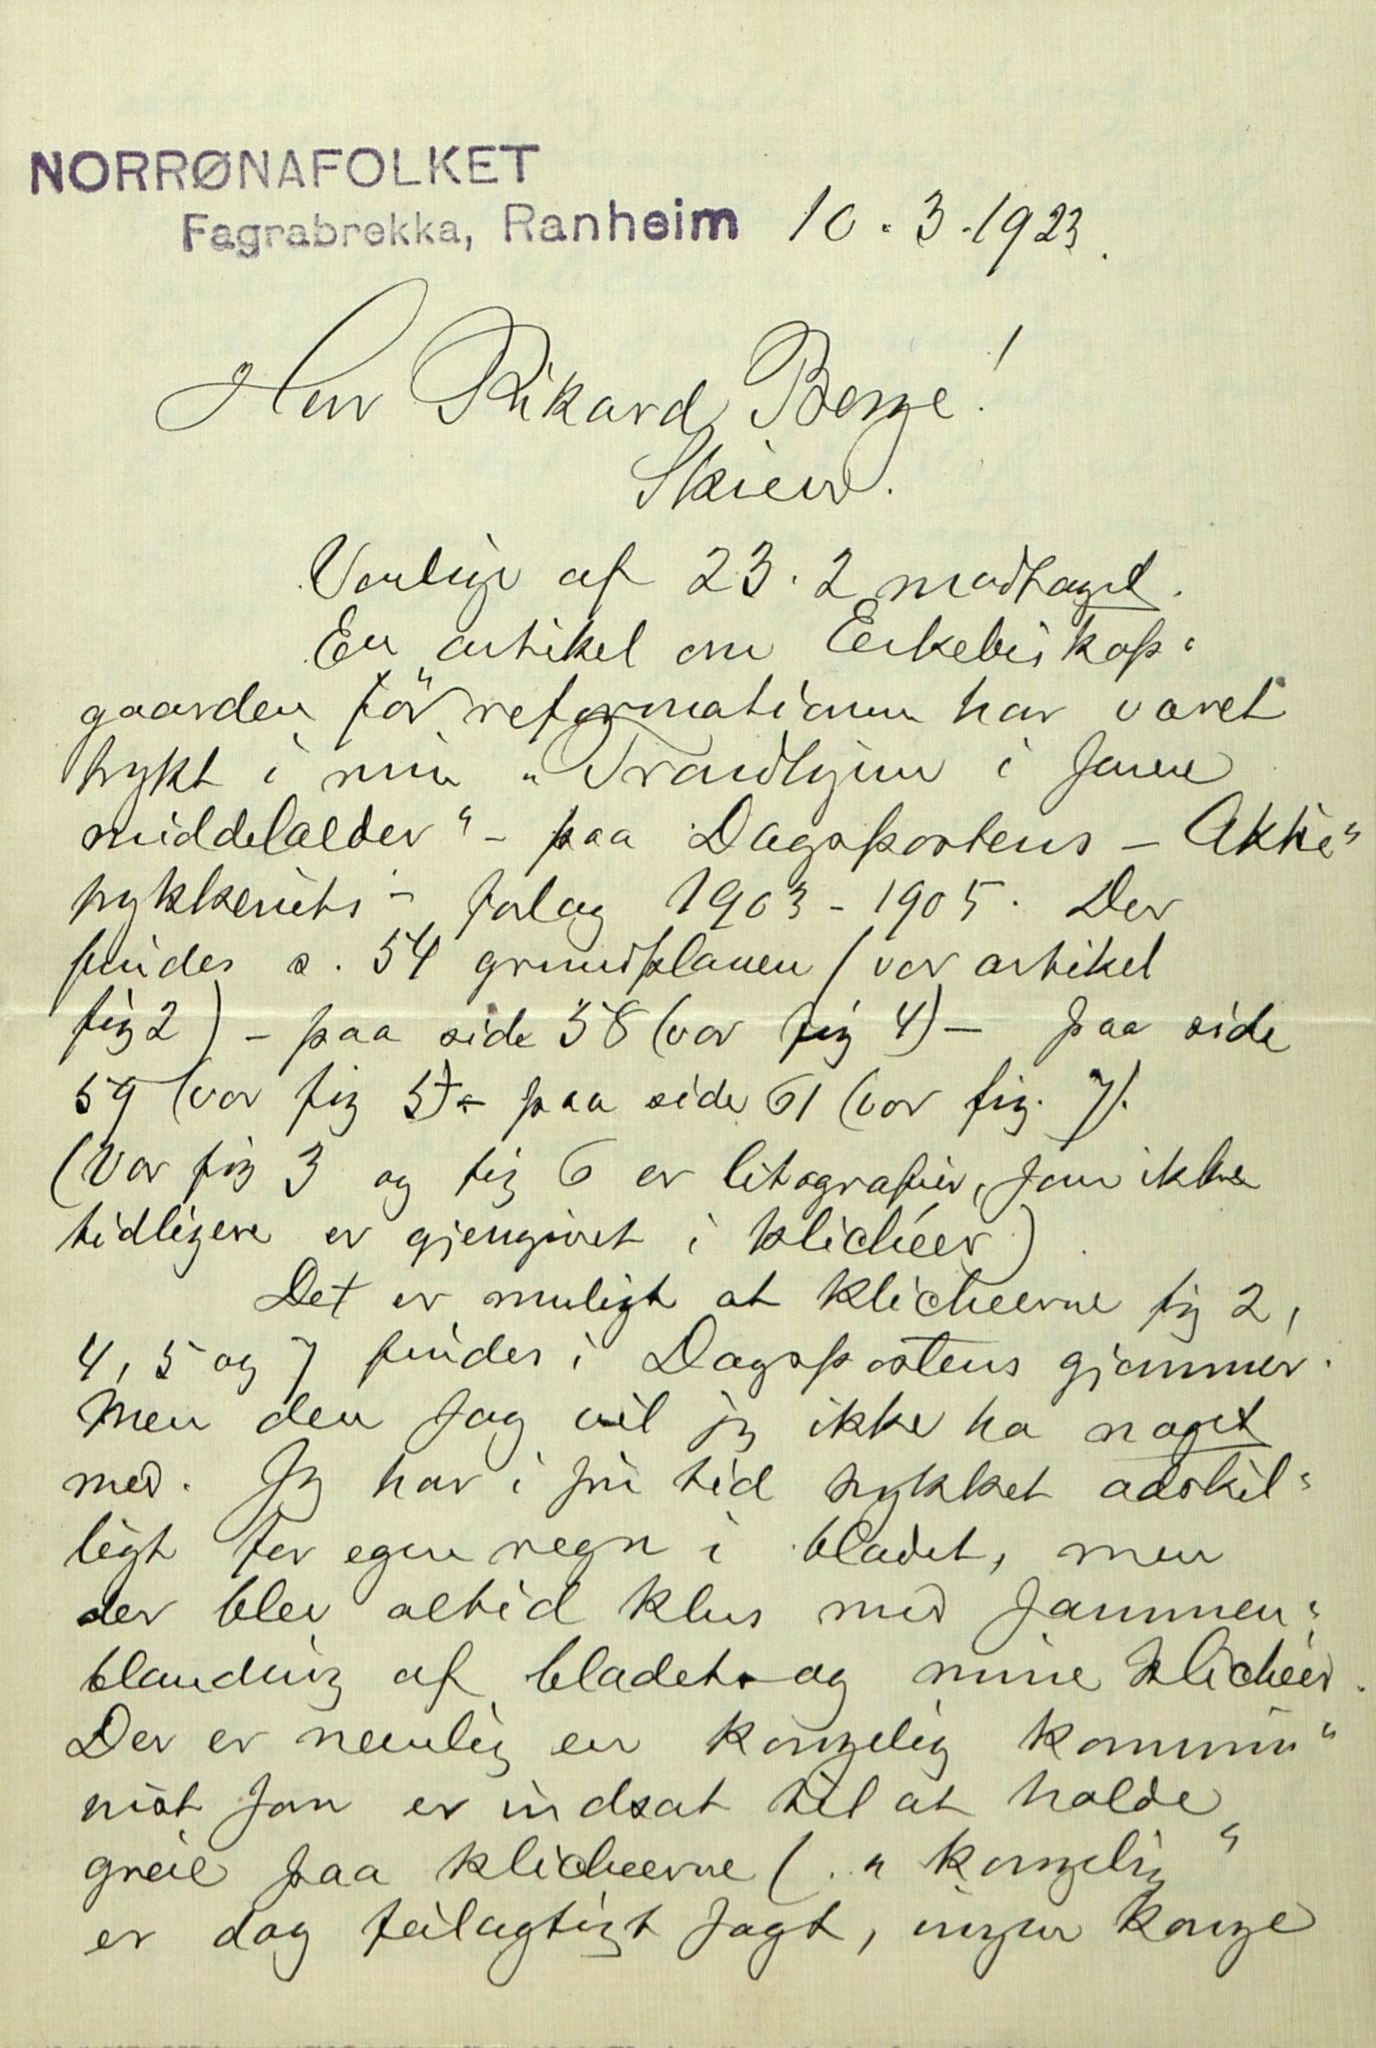 NORRØNAFOLKET
Fagrabrekka, Ranheim 10.3.1923.
Herr Rikard Berge!
Skien.
Venlige af 23.2 modtaget.
En artikel om Erkebiskops-
gaarden "før" reformationen har været
trykt i min "Trondhjem i senere
middelalder" - paa Dagspostens - Aktie-
trykkeriets - forlag 1903-1905. Der
findes s. 54 grundplanen (vor artikel
fig 2) - paa side 58 (vor fig 4) - paa side
59 (vor fig 5) - paa side 61 (vor fig. 7).
(Vor fig 3 og fig 6 er litografier, som ikke
tidligere er gjengivet i klichéer)
Det er muligt at klicheerne fig 2,
4, 5 og 7 findes i Dagspostens gjemmer.
Men den sag vil jeg ikke ha noget
med. Jeg har i sin tid trykket adskil-
ligt for egen regn i bladet, men
der blev altid klus med sammen-
blanding af bladets og mine klichéer.
Der er nemlig en kongelig kommu-
nist som er indsat til at holde
greie paa klicheerne (. "kongelig"
er dog feilagtigt sagt, ingen konge